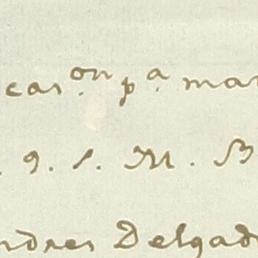 cas.on p.a man
. q. s. M. B
ndres Delgad